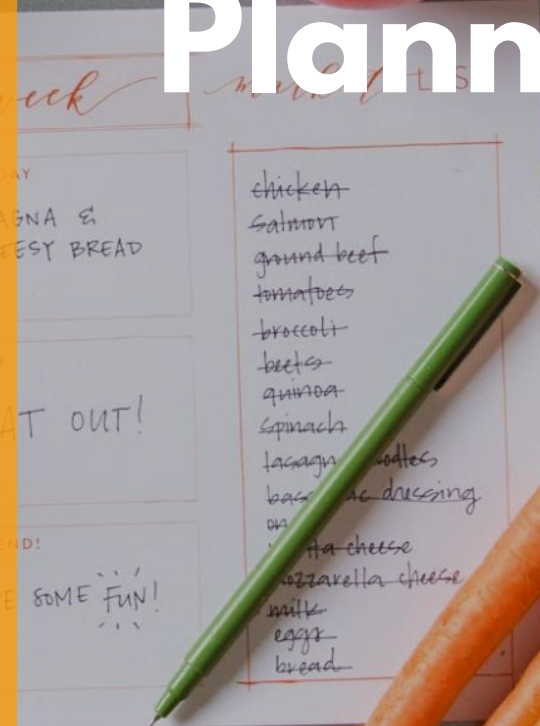 Plann
eek
LIS
DAY
AGNA &
EESY BREAD
AT OUT!
END!
E SOME FUN!
chicken
salmon
ground beef
tomatoes
broccoli
beets
quinoa
spinach
lasagn oodles
bas ic dressing
on
ta cheese
ozzarella cheese
milk
eggs
bread